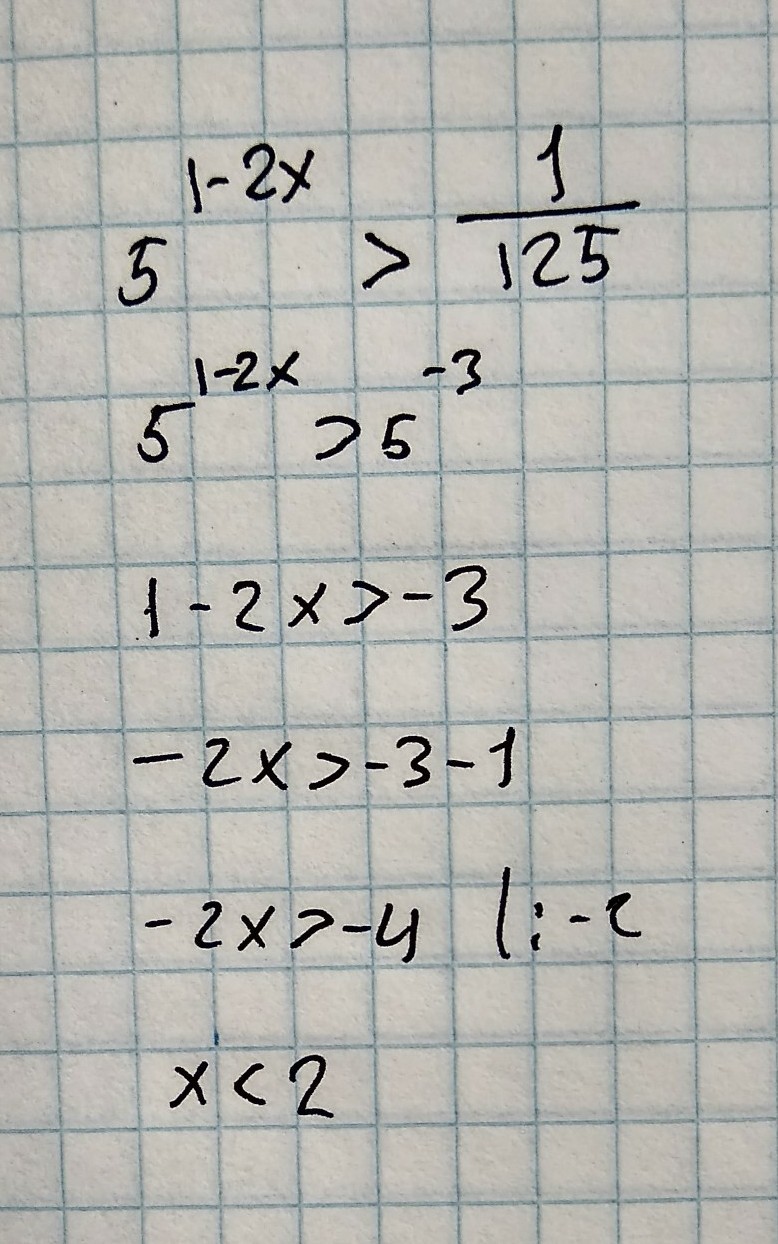 5^{1-2x} > \frac{1}{125}
5^{1-2x} > 5^{-3}
1-2x>-3
-2x>-3-1
-2x>-4 |:-2
x<2